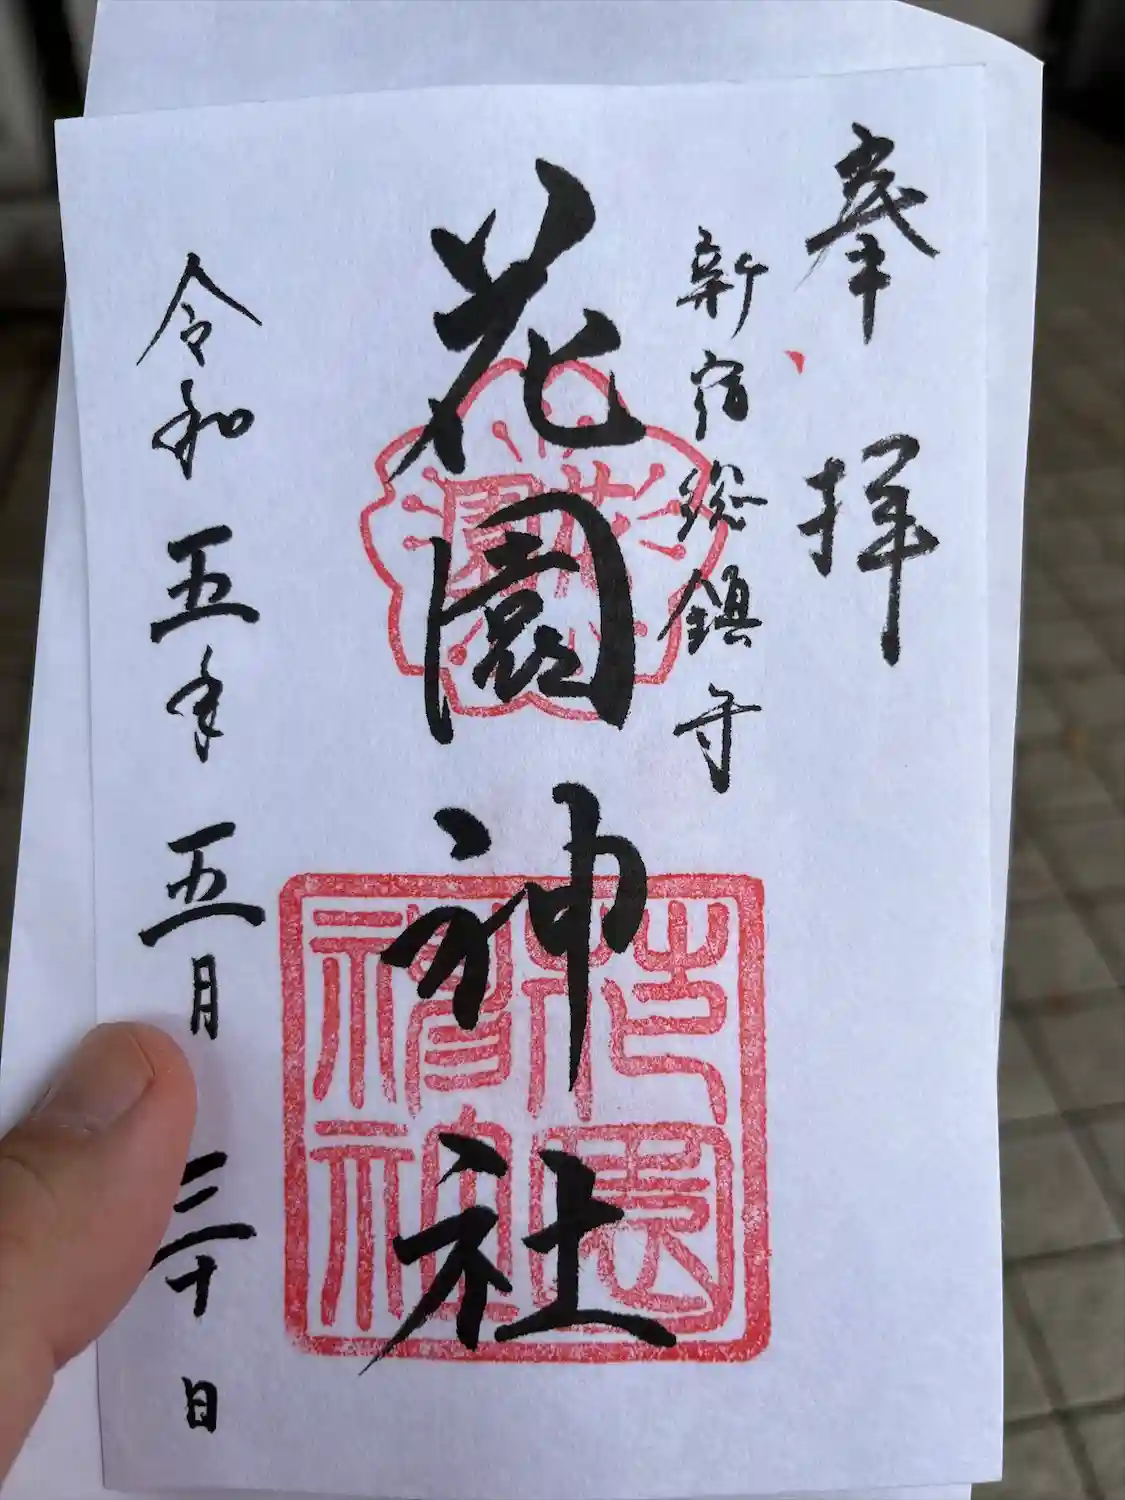 奉拝
新宿総鎮守
花園神社
花園
花園
稲神
令和五年五月三十日